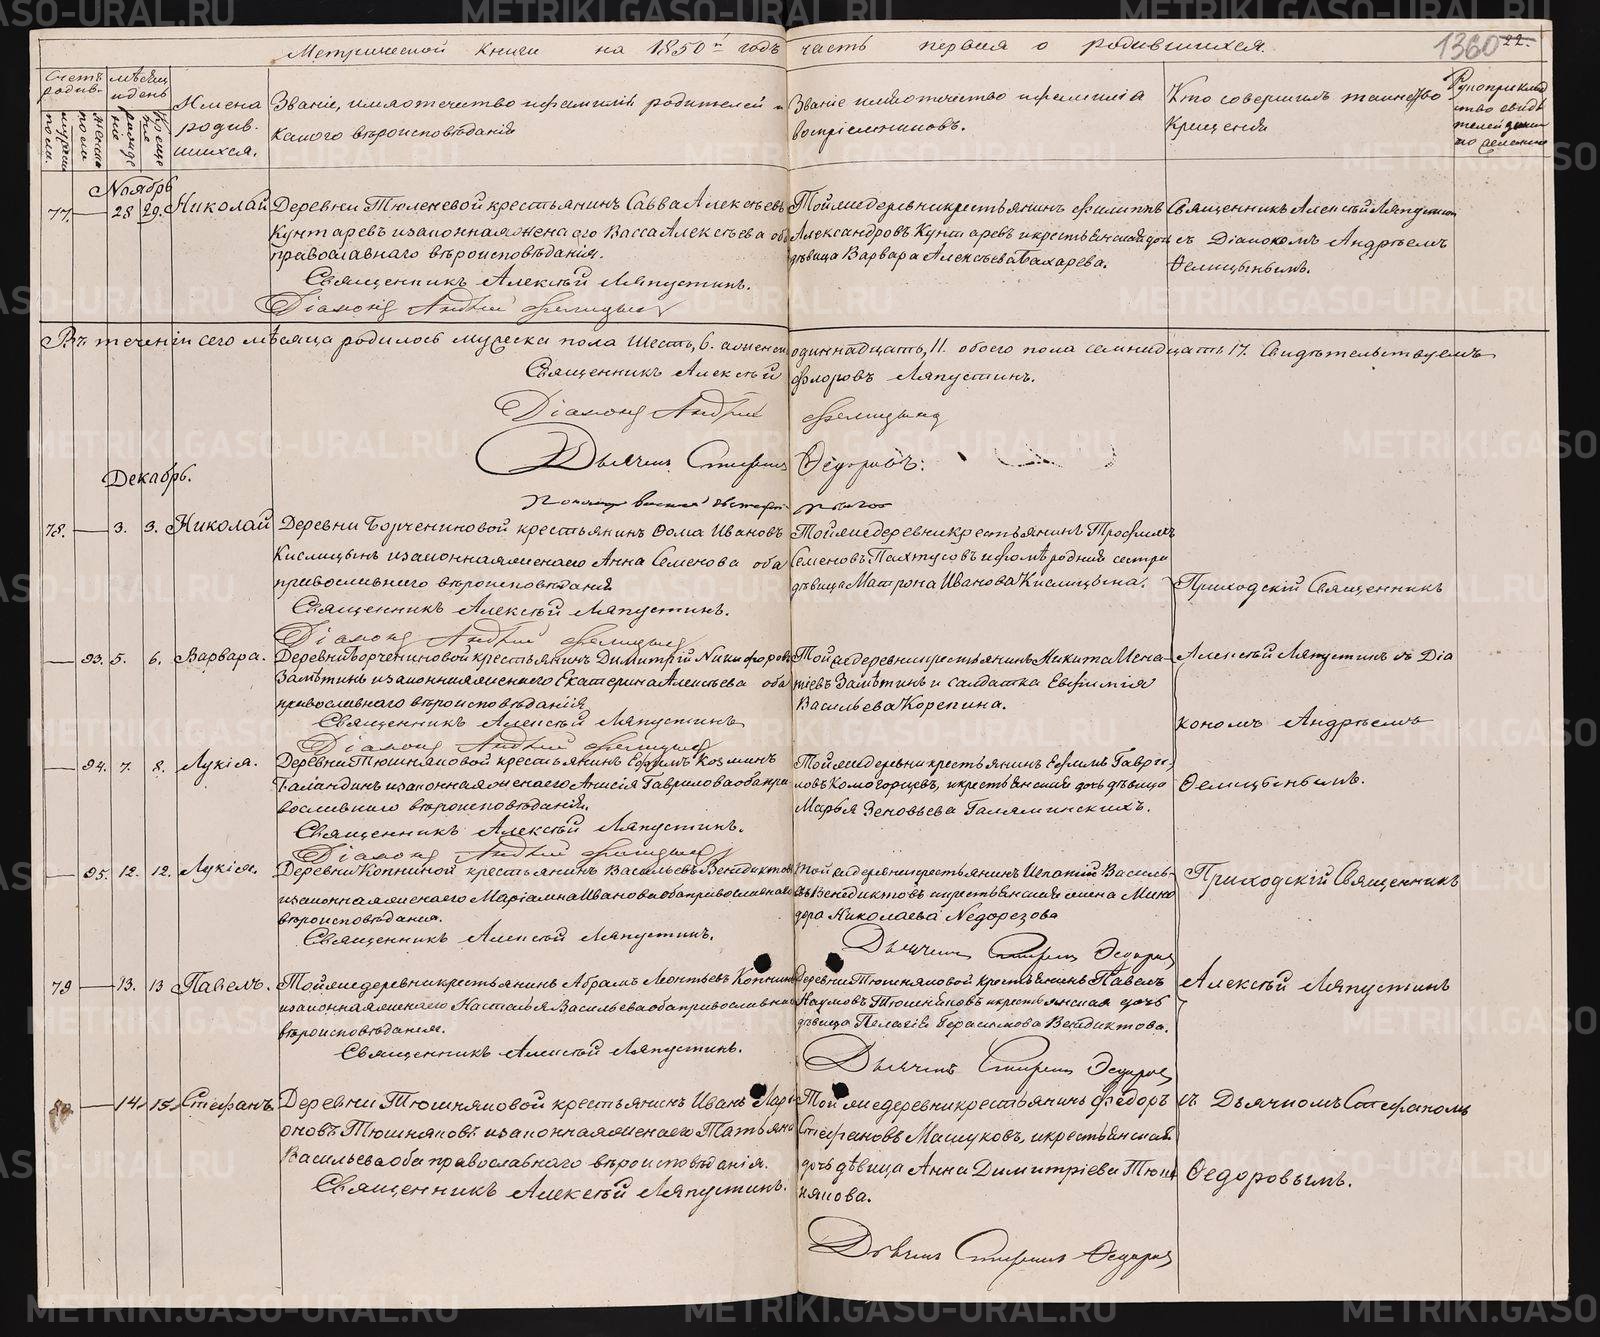 Метрической книги на 1850й годъ часть первая о родившихся.
1360 22.
Счетъ родив.
мѣсяцъ и день
мужеска пола.
женска пола.
рожденіе
крещенія
Имена родившихся.
Званіе, имя отечество и фамилія родителей и
какого вѣроисповѣданія
Званіе имя отечество и фамилія
воспріемниковъ.
Кто совершилъ таинство
крещенія
Рукоприкладство свидѣтелей
Ноябрь
77. — 28 29. Николай
Деревни Тюленевой крестьянинъ Савва Алексѣевъ
Кунгаревъ и законная жена его Васса Алексѣева оба
православнаго вѣроисповѣданія.
Священникъ Алексѣй Ляпустинъ.
Діаконъ Андрей Фелицынъ
Той же деревни крестьянинъ Филиппъ
Александровъ Кунгаревъ и крестьянская дочь
дѣвица Варвара Алексѣева Бахарева.
Священникъ Алексѣй Ляпустинъ
съ Діакономъ Андреемъ
Фелицынымъ.
Въ теченіи сего мѣсяца родилось мужеска пола шесть, 6. а женска одиннадцать, 11. обоего пола семнадцать 17. Свидѣтельствуемъ
Священникъ Алексѣй Флоровъ Ляпустинъ.
Діаконъ Андрей Фелицынъ
Дьячекъ Стефанъ Ѳедоровъ.
Декабрь.
78. — 3. 3. Николай
Деревни Борчениновой крестьянинъ Ѳома Ивановъ
Кислицынъ и законная жена его Анна Семенова оба
православнаго вѣроисповѣданія
Священникъ Алексѣй Ляпустинъ.
Діаконъ Андрей Фелицынъ
Той же деревни крестьянинъ Трофимъ
Семеновъ Пахтусовъ и Ѳомѣ родная сестра
дѣвица Матрона Иванова Кислицына.
Приходскій Священникъ
— 93. 5. 6. Варвара.
Деревни Борчениновой крестьянинъ Димитрій Никифоровъ
Замѣтинъ и законная жена его Екатерина Алексѣева оба
православнаго вѣроисповѣданія
Священникъ Алексѣй Ляпустинъ
Діаконъ Андрей Фелицынъ
Той же деревни крестьянинъ Никита Игнатіевъ
Замѣтинъ и салдатка Евфимія
Васильева Корепина.
Алексѣй Ляпустинъ съ Діакономъ Андреемъ
— 94. 7. 8. Лукія.
Деревни Тюшняковой крестьянинъ Ефимъ Козминъ
Галандинъ и законная жена его Анисія Гаврилова оба православнаго вѣроисповѣданія.
Священникъ Алексѣй Ляпустинъ.
Діаконъ Андрей Фелицынъ
Той же деревни крестьянинъ Ефимъ Гавриловъ
Комогорцевъ, и крестьянская дочь дѣвица
Марья Зеновьева Галяминскихъ.
Фелицынымъ.
— 95. 12. 12. Лукія.
Деревни Копниной крестьянинъ Васильевъ Венедиктовъ
и законная жена его Маріамна Иванова оба православнаго
вѣроисповѣданія.
Священникъ Алексѣй Ляпустинъ.
Той же деревни крестьянинъ Игнатій Васильевъ
Венедиктовъ и крестьянская жена Минодора
Николаева Недорезова
Дьячекъ Стефанъ Ѳедоровъ
Приходскій Священникъ
79 — 13. 13 Павелъ.
Той же деревни крестьянинъ Абрамъ Леонтьевъ Копнинъ
и законная жена его Настасья Васильева оба православнаго
вѣроисповѣданія.
Священникъ Алексѣй Ляпустинъ.
Деревни Тюшняковой крестьянинъ Павелъ
Наумовъ Тюшняковъ и крестьянская дочь
дѣвица Пелагія Герасимова Венедиктова.
Дьячекъ Стефанъ Ѳедоровъ
Алексѣй Ляпустинъ
80. — 14. 15. Стефанъ
Деревни Тюшняковой крестьянинъ Иванъ Маріоновъ
Тюшняковъ и законная жена его Татьяна
Васильева оба православнаго вѣроисповѣданія.
Священникъ Алексѣй Ляпустинъ.
Той же деревни крестьянинъ Федоръ
Стефановъ Машуковъ, и крестьянская
дочь дѣвица Анна Димитріева Тюшнякова.
Дьячекъ Стефанъ Ѳедоровъ
съ Дьячкомъ Стефаномъ
Ѳедоровымъ.
METRIKI.GASO-URAL.RU